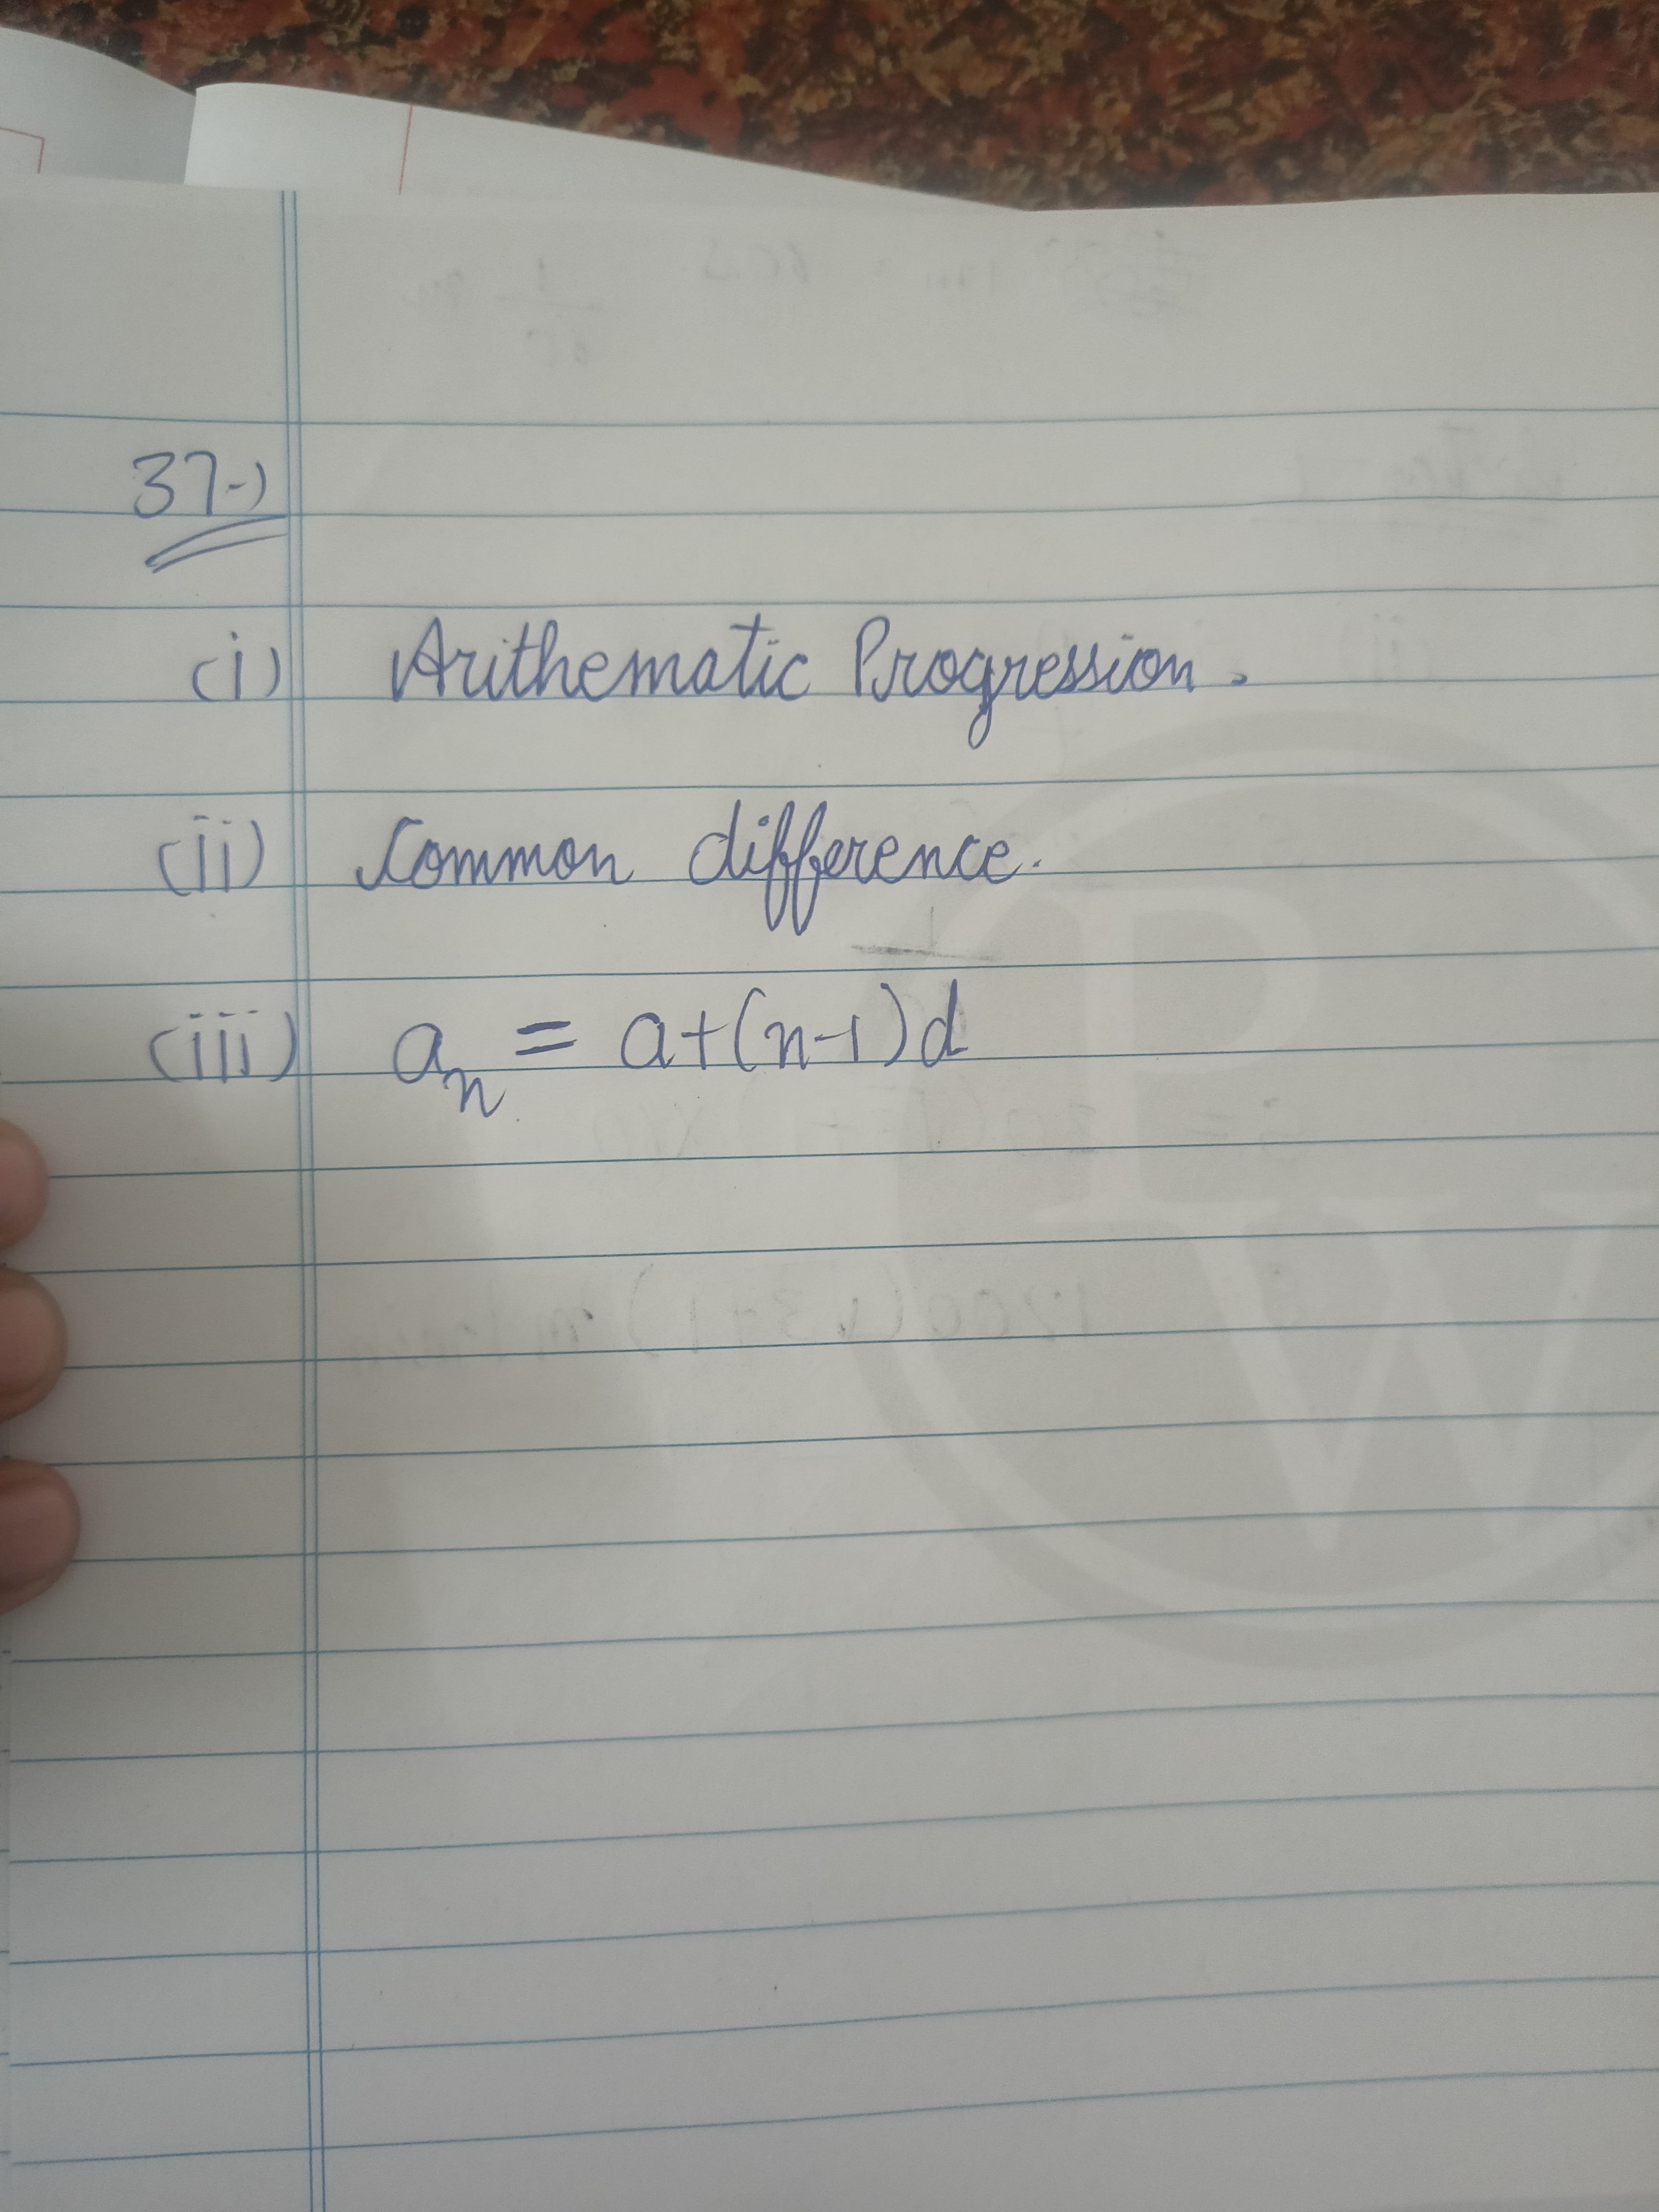 37-)
(i) Arithematic Progression.
(ii) Common difference.
(iii) aₙ = a+(n-1)d
PW